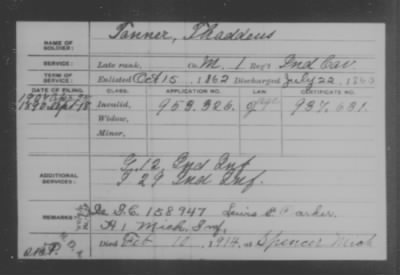 NAME OF SOLDIER: Tanner, Thaddeus
SERVICE: Late rank, Co. M. 1 Reg't Ind Cav.
TERM OF SERVICE: Enlisted Oct 15, 1862 Discharged July 22, 186
DATE OF FILING. CLASS. APPLICATION NO. LAW. CERTIFICATE NO.
1890 Sept 18 Invalid, 953.326. 937.631.
Widow,
Minor,
ADDITIONAL SERVICES: G. 12, Ind Inf
F 29 Ind Inf.
REMARKS: S.C. 158947 Lewis Parker.
H 1 Mich. Inf,
Died Feb 10, 1914, at Spencer Mich